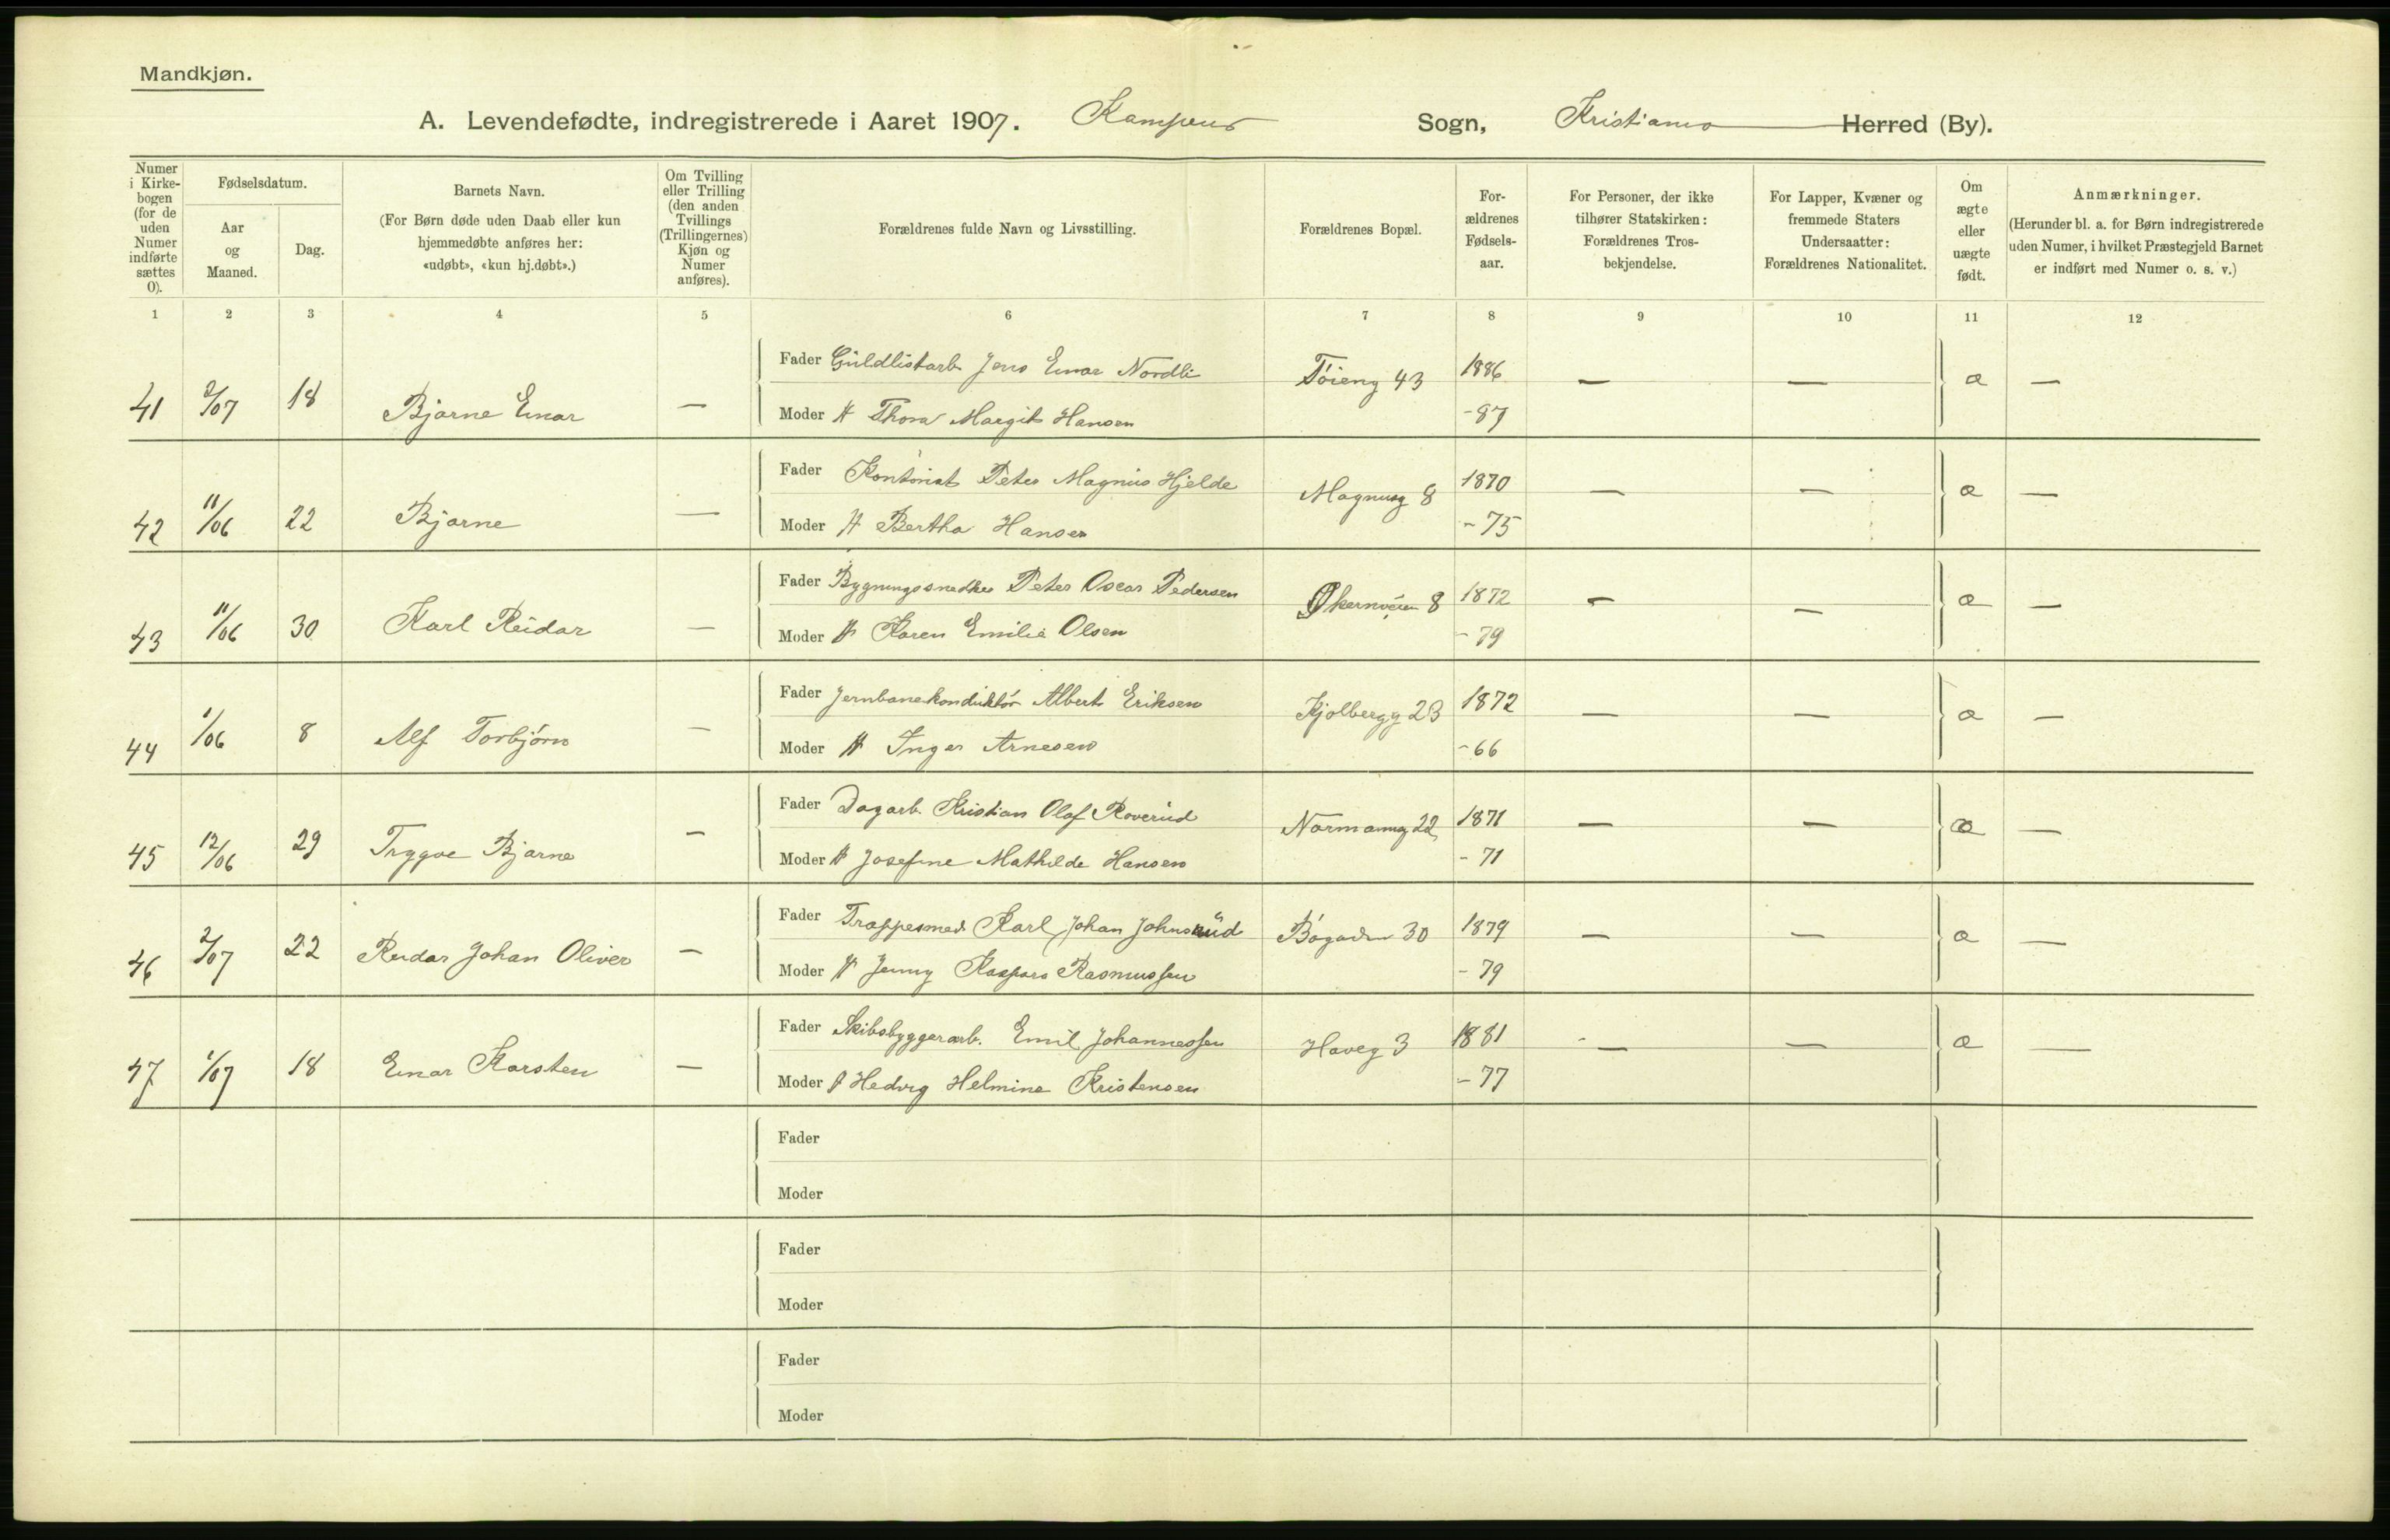 Mandkjøn.
A. Levendefødte, indregistrerede i Aaret 1907. Kampens Sogn, Kristiania Herred (By).
Numer i Kirkebogen (for de uden Numer indførte sættes 0).
Fødselsdatum.
Aar og Maaned.
Dag.
Barnets Navn.
(For Børn døde uden Daab eller kun hjemmedøbte anføres her: «udøbt», «kun hj.døbt».)
Om Tvilling eller Trilling (den anden Tvillings (Trillingernes) Kjøn og Numer anføres).
Forældrenes fulde Navn og Livsstilling.
Forældrenes Bopæl.
Forældrenes Fødselsaar.
For Personer, der ikke tilhører Statskirken: Forældrenes Trosbekjendelse.
For Lapper, Kvæner og fremmede Staters Undersaatter: Forældrenes Nationalitet.
Om ægte eller uægte født.
Anmærkninger.
(Herunder bl. a. for Børn indregistrerede uden Numer, i hvilket Præstegjeld Barnet er indført med Numer o. s. v.)
1 2 3 4 5 6 7 8 9 10 11 12
Fader Guldlistarb. Jens Einar Nordli Tøieng 43 1886 — — æ —
41 2/07 18 Bjarne Einar — Moder H Thora Margit Hansen -87
Fader Kontorist Peter Magnus Hjelde Magnusg 8 1870 — — æ —
42 11/06 22 Bjarne — Moder H Bertha Hansen -75
Fader Bygningssnedker Peter Oscar Pedersen Økernveien 8 1872 — — æ —
43 11/06 30 Karl Reidar — Moder H Karen Emilie Olsen -79
Fader Jernbanekonduktör Albert Eriksen Kjølbergg 23 1872 — — æ —
44 1/06 8 Alf Torbjörn — Moder H Inger Arnesen -66
Fader Dagarb. Kristian Olaf Roverud Normanng 22 1871 — — æ —
45 12/06 29 Trygve Bjarne — Moder H Josefine Mathilde Hansen -71
Fader Trappesmed Karl Johan Johnsrud Bøgaden 30 1879 — — æ —
46 2/07 22 Reidar Johan Oliver — Moder H Jenny Kaspara Rasmussen -79
Fader Skibsbyggerarb. Emil Johannessen Haveg 3 1881 — — æ —
47 1/07 18 Einar Karsten — Moder H Hedvig Helmine Kristensen -77
Fader
Moder
Fader
Moder
Fader
Moder